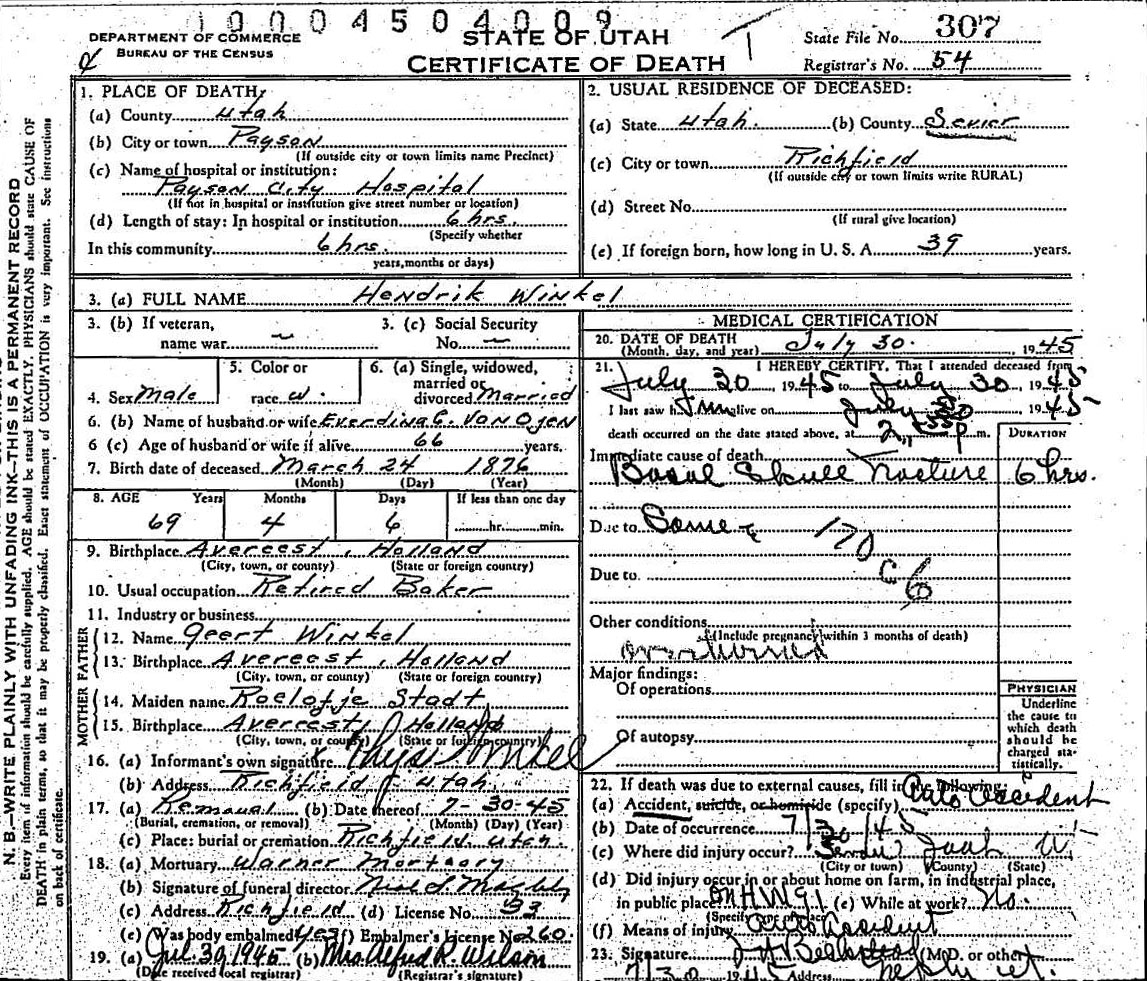 1 0 0 0 4 5 0 4 0 0 9
DEPARTMENT OF COMMERCE
BUREAU OF THE CENSUS
STATE OF UTAH
CERTIFICATE OF DEATH
State File No. 307
Registrar's No. 54
N. B.—WRITE PLAINLY WITH UNFADING INK—THIS IS A PERMANENT RECORD
Every item of information should be carefully supplied. AGE should be stated EXACTLY. PHYSICIANS should state CAUSE OF
DEATH in plain terms, so that it may be properly classified. Exact statement of OCCUPATION is very important. See instructions
on back of certificate.
1. PLACE OF DEATH:
(a) County Utah
(b) City or town Payson
(If outside city or town limits name Precinct)
(c) Name of hospital or institution:
Payson City Hospital
(If not in hospital or institution give street number or location)
(d) Length of stay: In hospital or institution 6 hrs.
(Specify whether
In this community 6 hrs.
years, months or days)
2. USUAL RESIDENCE OF DECEASED:
(a) State Utah. (b) County Sevier
(c) City or town Richfield
(If outside city or town limits write RURAL)
(d) Street No.
(If rural give location)
(e) If foreign born, how long in U. S. A 39 years.
3. (a) FULL NAME Hendrik Winkel
3. (b) If veteran, name war —
3. (c) Social Security No. —
4. Sex Male
5. Color or race w.
6. (a) Single, widowed, married or divorced Married
6. (b) Name of husband or wife Everdina G. Van Ojen
6 (c) Age of husband or wife if alive 66 years.
7. Birth date of deceased March 24 1876
(Month) (Day) (Year)
8. AGE Years Months Days If less than one day
69 4 6 hr. min.
9. Birthplace Avereest, Holland
(City, town, or county) (State or foreign country)
10. Usual occupation Retired Baker
11. Industry or business
FATHER
12. Name Geert Winkel
13. Birthplace Avereest, Holland
(City, town, or county) (State or foreign country)
MOTHER
14. Maiden name Roelofje Stadt
15. Birthplace Avereest, Holland
(City, town, or county) (State or foreign country)
16. (a) Informant's own signature Thys Winkel
(b) Address Richfield Utah
17. (a) Removal (b) Date thereof 7-30-45
(Burial, cremation, or removal) (Month) (Day) (Year)
(c) Place: burial or cremation Richfield. Utah.
18. (a) Mortuary Warner Mortuary
(b) Signature of funeral director
(c) Address Richfield (d) License No. 33
(e) Was body embalmed yes (f) Embalmer's License No 260
19. (a) Jul. 30, 1945 (b) Mrs Alfred R. Wilson
(Date received local registrar) (Registrar's signature)
MEDICAL CERTIFICATION
20. DATE OF DEATH July 30. 1945
(Month, day, and year)
21. I HEREBY CERTIFY, That I attended deceased from
July 30 1945 to July 30, 1945
I last saw h im alive on July 30 1945
death occurred on the date stated above, at p. m.
DURATION
Immediate cause of death
Basal Skull Fracture 6 hrs.
Due to Same
170
c 6
Due to
Other conditions
(Include pregnancy within 3 months of death)
overturned
Major findings:
Of operations
Of autopsy
PHYSICIAN
Underline
the cause to
which death
should be
charged sta-
tistically.
22. If death was due to external causes, fill in following:
(a) Accident, suicide, or homicide (specify) Auto Accident
(b) Date of occurrence 7/30/45
(c) Where did injury occur?
(City or town) (County) (State)
(d) Did injury occur in or about home on farm, in industrial place,
in public place on H.W. 91 (e) While at work? No.
(Specify type of place)
(f) Means of injury Auto Accident
23. Signature (M.D. or other)
7/30 1945 Address Nephi Ut.